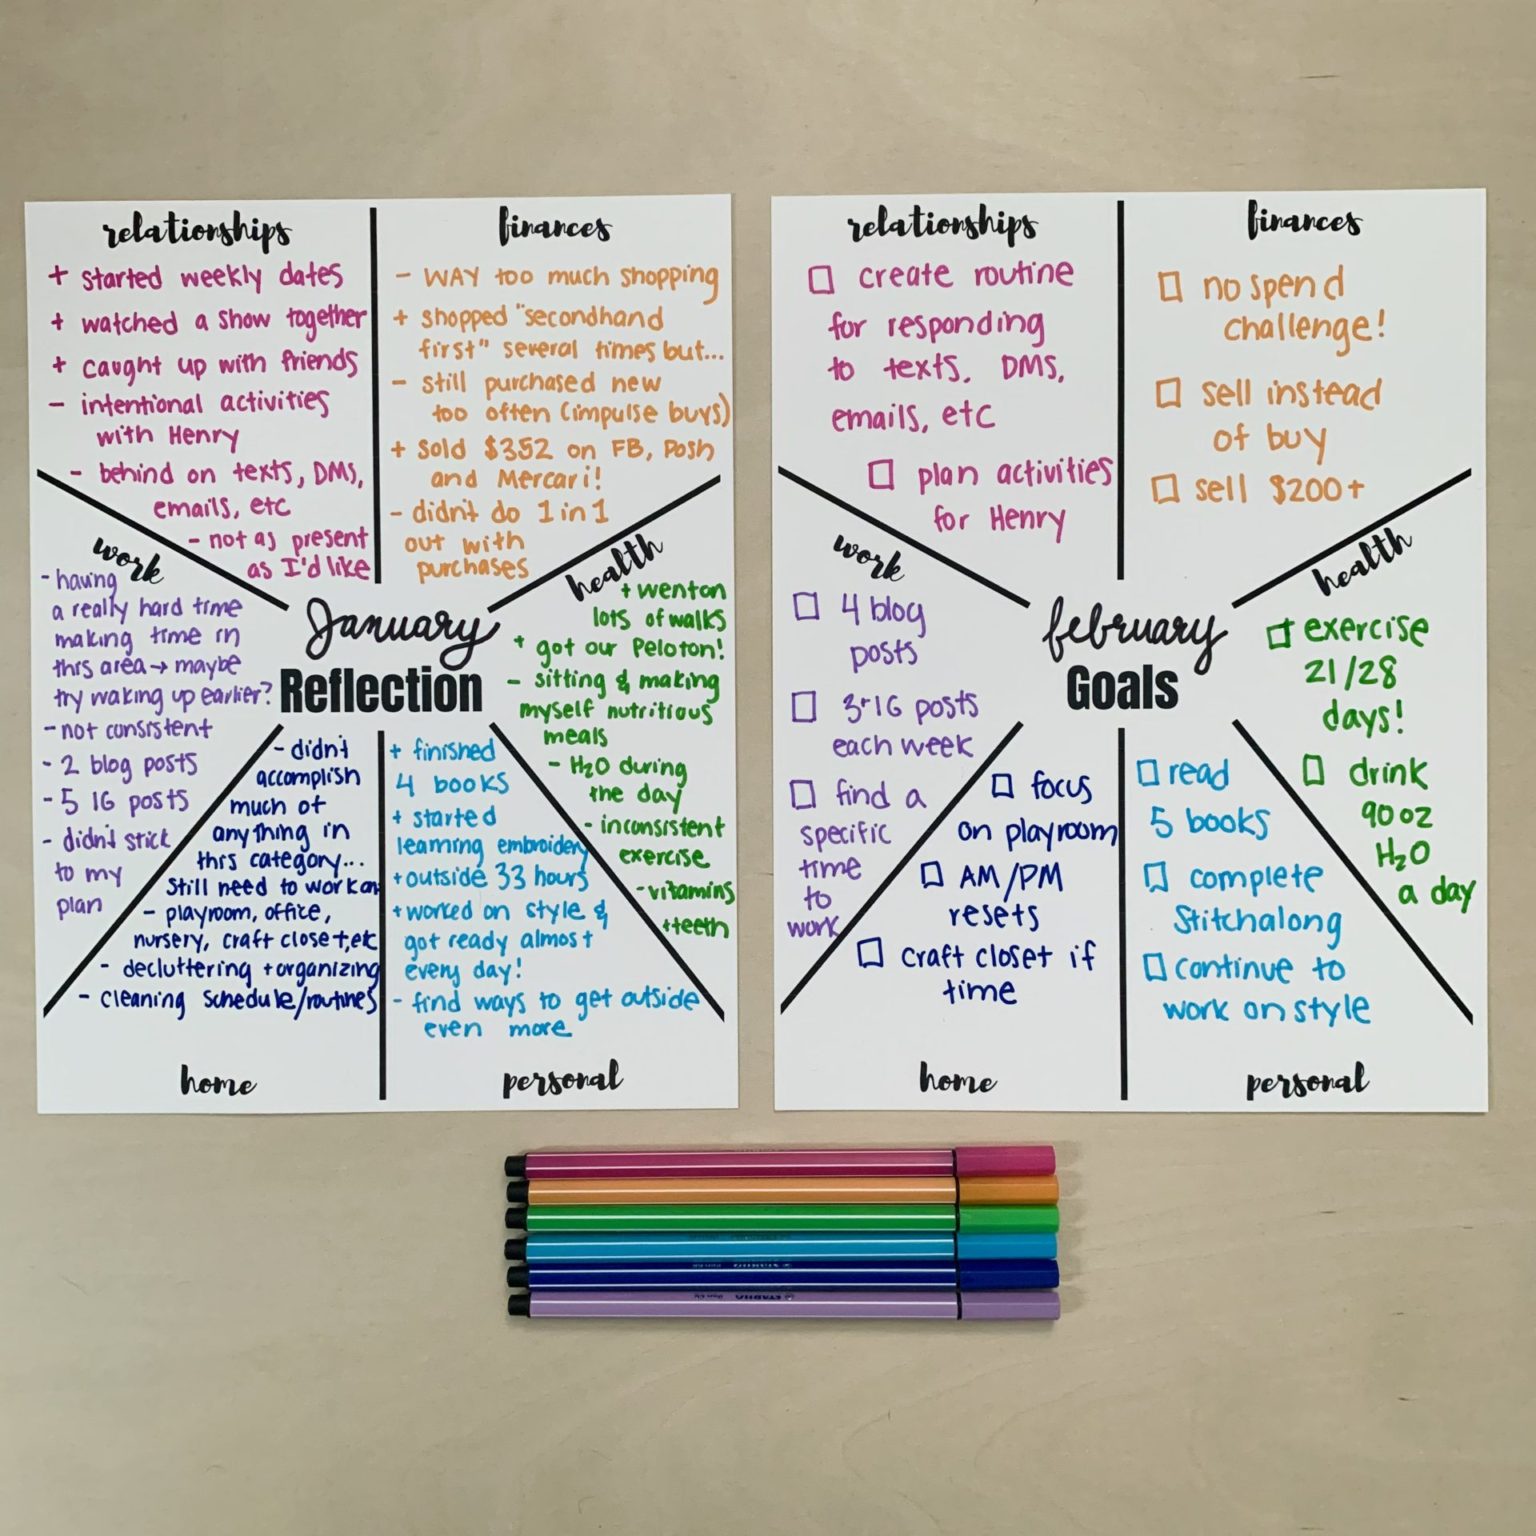 relationships
+ started weekly dates
+ watched a show together
+ caught up with friends
- intentional activities
with Henry
- behind on texts, DMs,
emails, etc
- not as present
as I'd like
finances
- WAY too much shopping
+ shopped "secondhand
first" several times but...
- still purchased new
too often (impulse buys)
+ sold $352 on FB, Posh
and Mercari!
- didn't do 1 in 1
out with
purchases
work
- having
a really hard time
making time in
this area → maybe
try waking up earlier?
- not consistent
- 2 blog posts
- 5 IG posts
- didn't stick
to my
plan
January
Reflection
health
+ went on
lots of walks
+ got our Peloton!
- sitting & making
myself nutritious
meals
- H2O during
the day
- inconsistent
exercise
- vitamins
+ teeth
- didn't
accomplish
much of
anything in
this category...
still need to work on
- playroom, office,
nursery, craft closet, etc
- decluttering + organizing
- cleaning schedule/routines
home
+ finished
4 books
+ started
learning embroidery
+ outside 33 hours
+ worked on style &
got ready almost
every day!
- find ways to get outside
even more
personal
relationships
☐ create routine
for responding
to texts, DMs,
emails, etc
☐ plan activities
for Henry
finances
☐ no spend
challenge!
☐ sell instead
of buy
☐ sell $200+
work
☐ 4 blog
posts
☐ 3+ IG posts
each week
☐ find a
specific
time
to
work
february
Goals
health
☐ exercise
21/28
days!
☐ drink
90 oz
H2O
a day
☐ focus
on playroom
☐ AM/PM
resets
☐ craft closet if
time
home
☐ read
5 books
☐ complete
Stitchalong
☐ continue to
work on style
personal
STABILO
STABILO